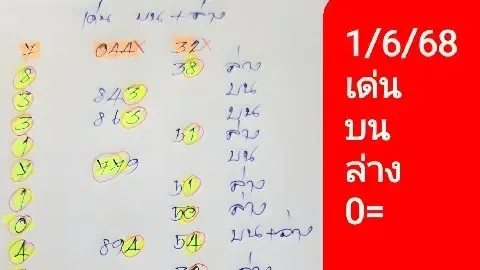 เด่น บน + ล่าง
y 044x 32x
8 38 ล่าง
3 843 บน
3 863 บน
1 51 ล่าง
y 779 บน
1 51 ล่าง
0 50 ล่าง
4 894 54 บน+ล่าง
ล่าง
1/6/68
เด่น
บน
ล่าง
0=